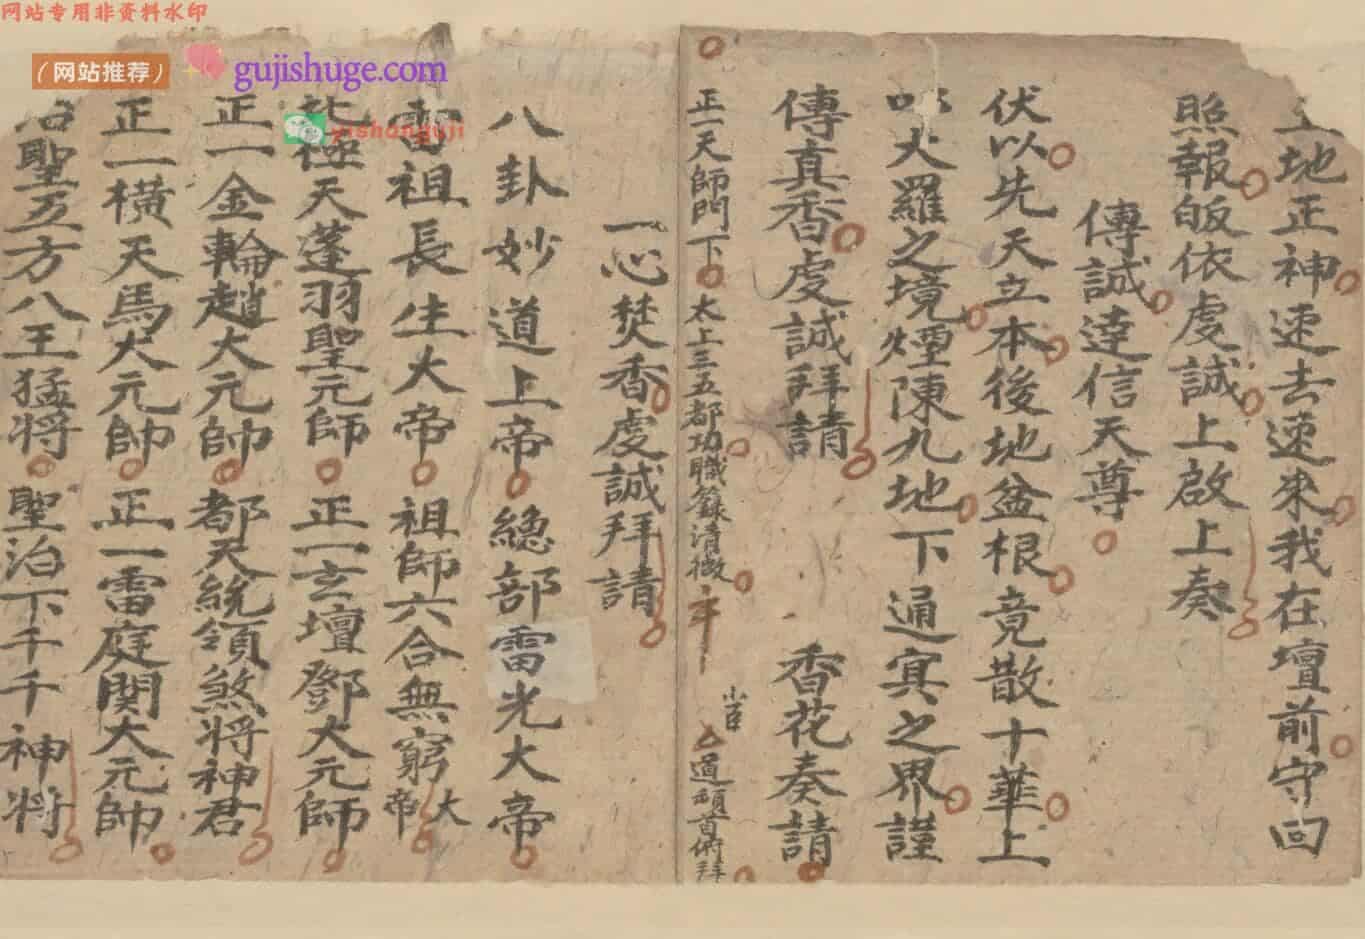 网站专用非资料水印
(网站推荐)
gujishuge.com
yishanguji
地正神速去速来我在壇前守向
照報皈依虔誠上啟上奏
傳誠達信天尊
伏以先天立本後地盆根竟散十華上
火羅之境煙陳九地下通冥之界謹
傳真香虔誠拜請 香花奏請
正一天師門下太上三五都功職籙清微 小臣 道頓首俯拜
一心焚香虔誠拜請
八卦妙道上帝 總部雷光大帝
雷祖長生大帝 祖師六合無窮大帝
極天蓬羽聖元師 正一玄壇鄧大元師
正一金輪趙大元帥 都天統領煞將神君
正一橫天馬大元帥 正一雷庭関大元帥
聖五方八王猛将 聖治下千千神将